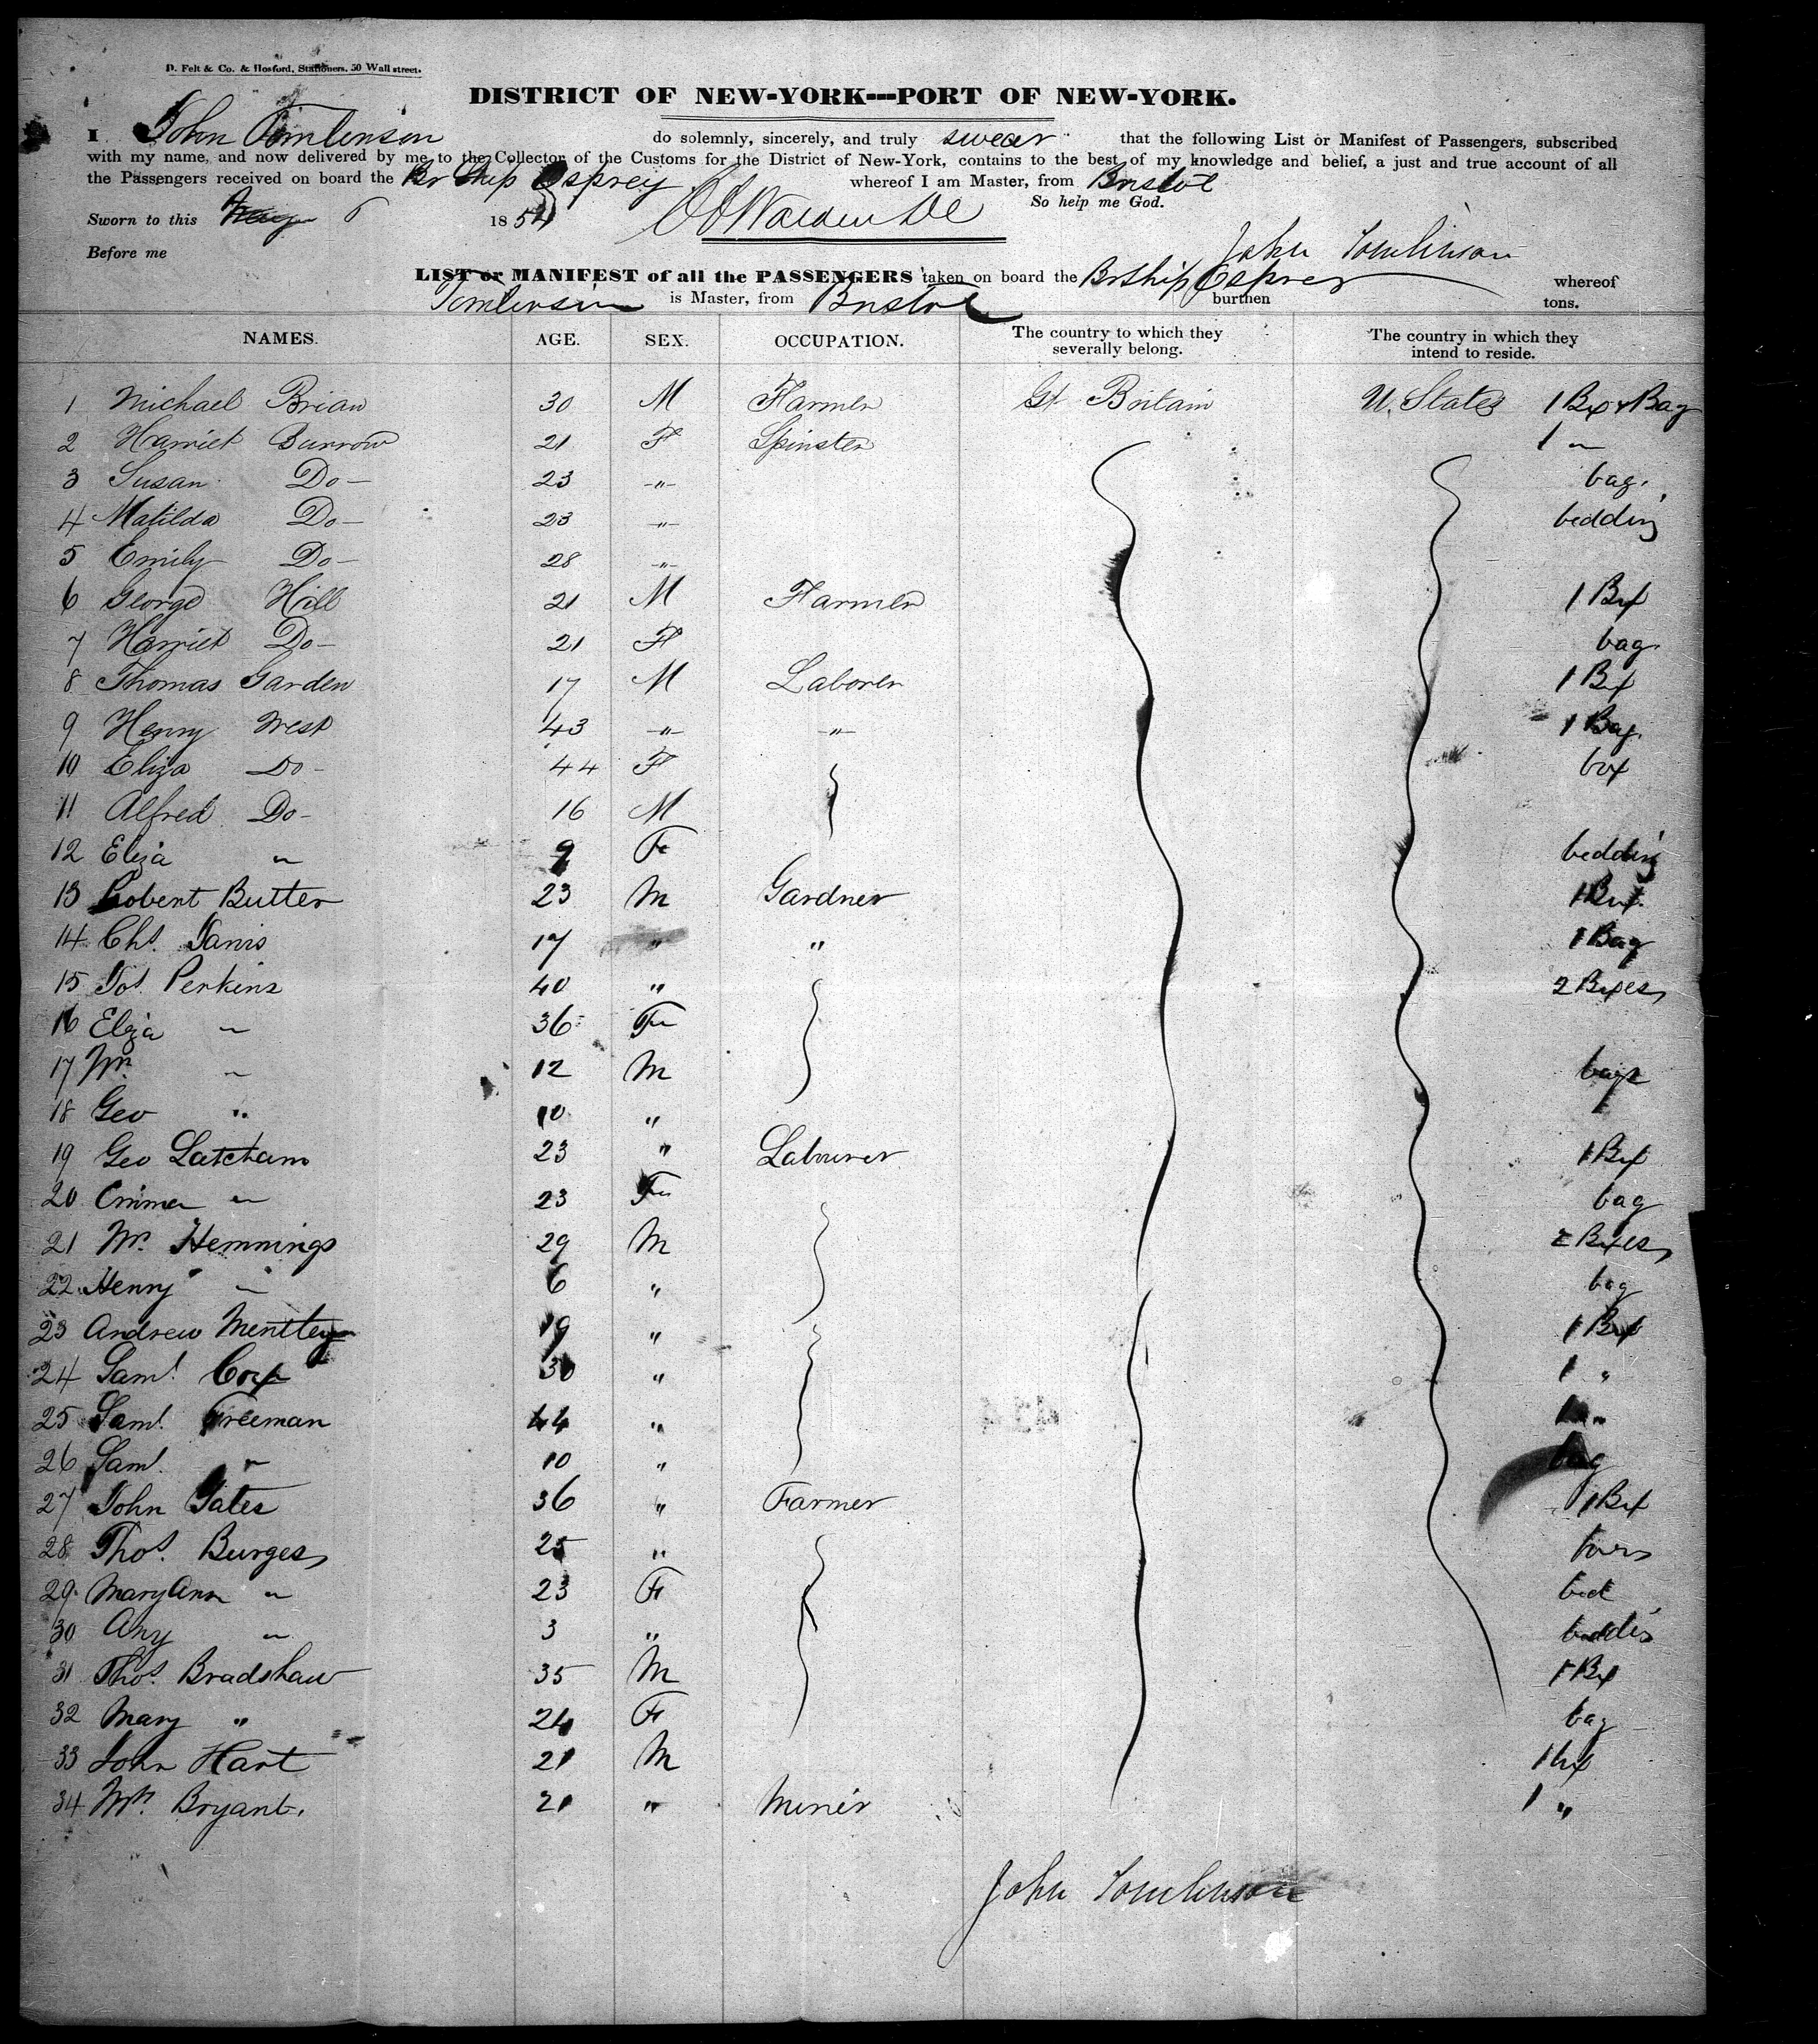 D. Felt & Co. & Hosford, Stationers. 50 Wall street.
DISTRICT OF NEW-YORK---PORT OF NEW-YORK.
I John Tomlinson do solemnly, sincerely, and truly swear that the following List or Manifest of Passengers, subscribed
with my name, and now delivered by me to the Collector of the Customs for the District of New-York, contains to the best of my knowledge and belief, a just and true account of all
the Passengers received on board the Br Ship Osprey whereof I am Master, from Bristol
So help me God.
Sworn to this May 6 1854
Before me John Tomlinson
LIST or MANIFEST of all the PASSENGERS taken on board the Br Ship Osprey whereof
Tomlinson is Master, from Bristol burthen tons.
NAMES. AGE. SEX. OCCUPATION. The country to which they severally belong. The country in which they intend to reside.
1 Michael Brian 30 M Farmer Gt Britain U. States 1 Box & Bag
2 Harriet Burrow 21 F Spinster 1 "
3 Susan Do- 23 -"- bag.
4 Matilda Do- 23 -"- bedding
5 Emily Do- 28 -"-
6 George Hill 21 M Farmer 1 Box
7 Harriet Do- 21 F bag.
8 Thomas Garden 17 M Laborer 1 Box
9 Henry West 43 -"- -"- 1 Bag.
10 Eliza Do- 44 F box
11 Alfred Do- 16 M
12 Eliza " 9 Fe bedding
13 Robert Butter 23 M Gardner 1 Box
14 Chs. Janis 17 " " 1 Bag
15 Jos. Perkins 40 " 2 Boxes
16 Eliza " 36 Fe
17 Wm " 12 M bags
18 Geo " 10 "
19 Geo Latcham 23 " Labourer 1 Box
20 Emma " 23 Fe bag
21 Wm. Hemmings 29 M 2 Boxes
22 Henry " 6 " bag
23 Andrew Mentley 19 " 1 Box
24 Saml. Cox 30 " 1 "
25 Saml. Freeman 44 " 1 "
26 Saml. " 10 " bag
27 John Yates 36 " Farmer 1 Box
28 Thos. Burges 25 "
29 Mary Ann " 23 Fe bed
30 Any " 3 "
31 Thos. Bradshaw 35 M 1 Box
32 Mary " 24 Fe bag
33 John Hart 21 M 1 box
34 Wm. Bryant. 21 " Miner 1 "
John Tomlinson